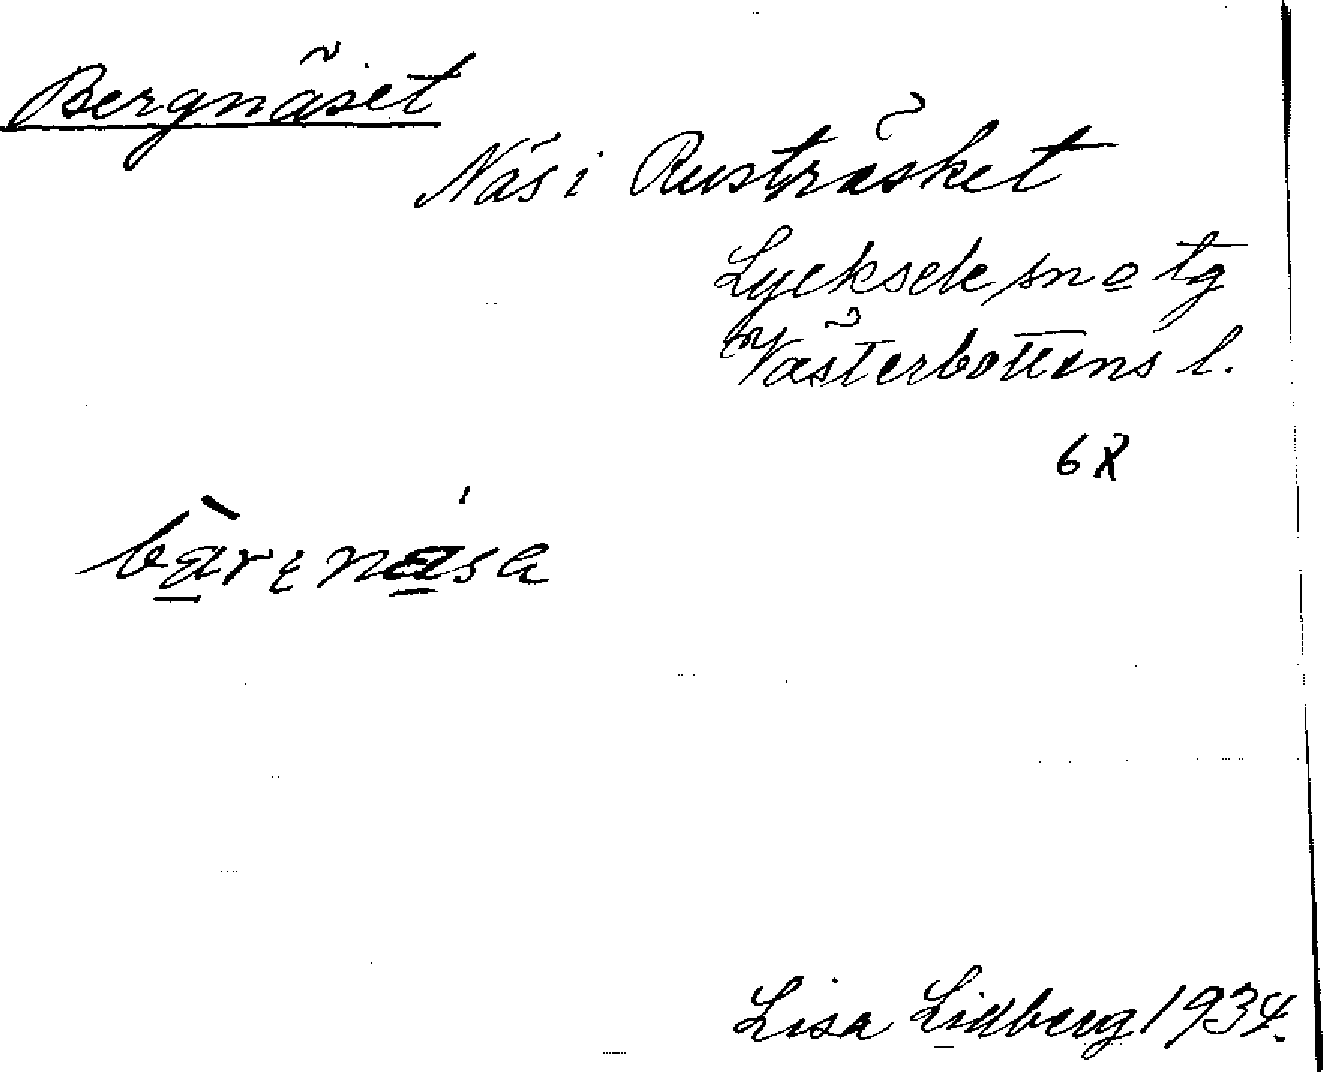 Bergnäset
Näs i Rusträsket
Lycksele sn o tg
Västerbottens l.
Lisa Lidberg 1934.